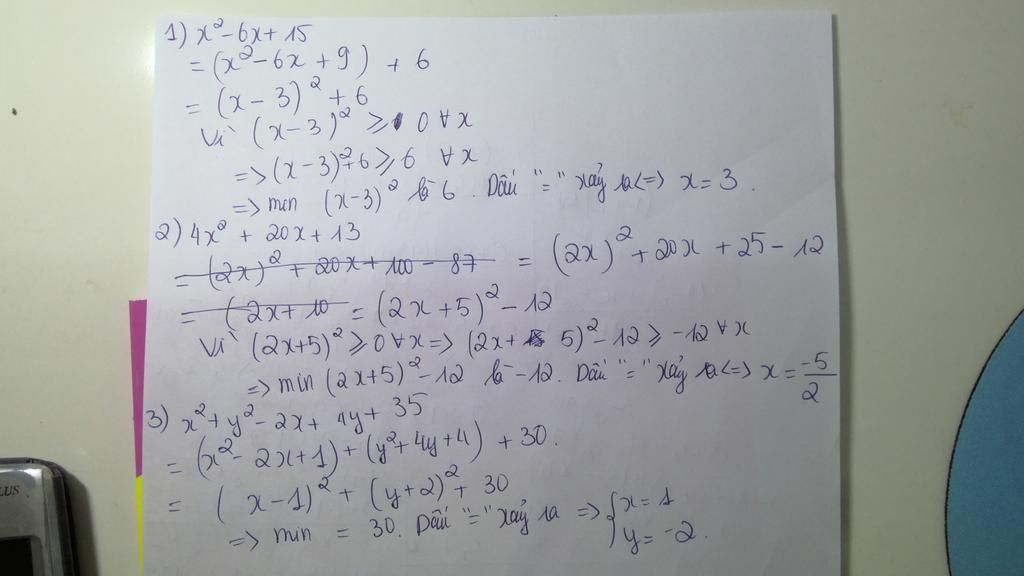 1) x² - 6x + 15
= (x² - 6x + 9) + 6
= (x - 3)² + 6
Vì (x - 3)² ≥ 0 ∀x
=> (x - 3)² + 6 ≥ 6 ∀x
=> min (x-3)² là 6. Dấu "=" xảy ra <=> x = 3.
2) 4x² + 20x + 13
= (2x)² + 20x + 100 - 87 = (2x)² + 20x + 25 - 12
= (2x + 10 = (2x + 5)² - 12
Vì (2x+5)² ≥ 0 ∀x => (2x + 5)² - 12 ≥ -12 ∀x
=> min (2x+5)² - 12 là -12. Dấu "=" xảy ra <=> x = -5/2
3) x² + y² - 2x + 4y + 35
= (x² - 2x + 1) + (y² + 4y + 4) + 30.
= (x - 1)² + (y + 2)² + 30
=> min = 30. Dấu "=" xảy ra => { x = 1
y = -2.
LUS